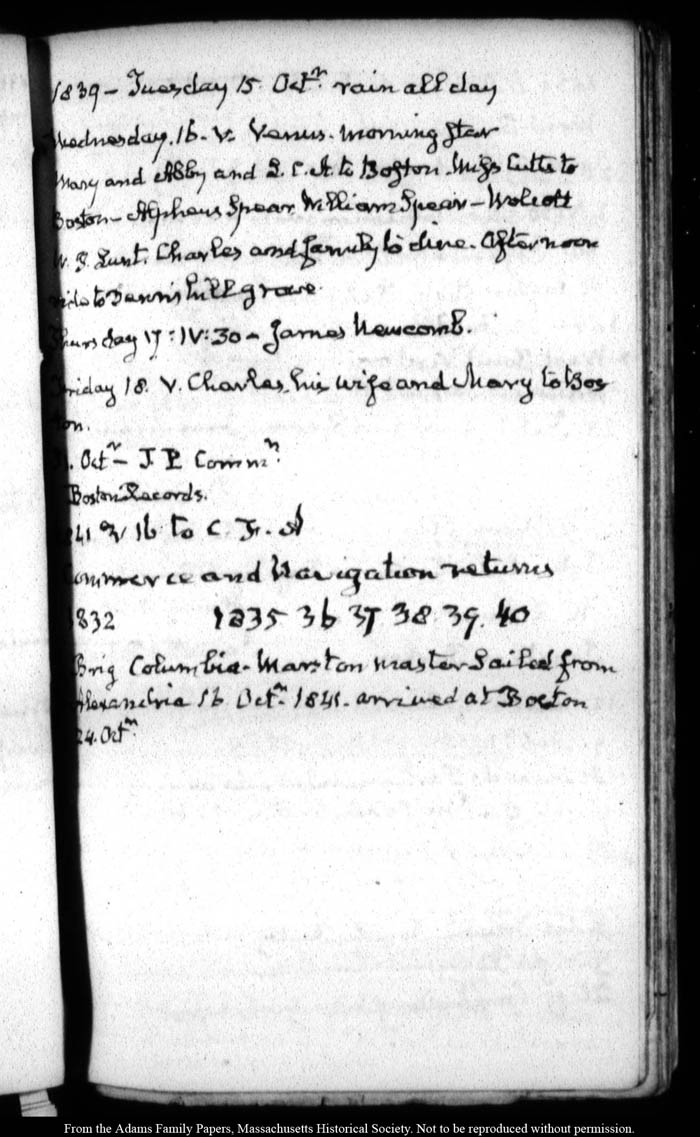 1839 – Tuesday 15. Octr. rain all day
Wednesday. 16. V. Venus. morning star
Mary and Abby and L. C. A. to Boston. Miss Cutts to
Boston – Alpheus Spear William Spear – Wolcott
W. P. Lunt. Charles and family to dine. Afternoon
ride to hill grove.
Thursday 17: IV:30 – James Newcomb.
Friday 18. V. Charles, his wife and Mary to Bos
ton.
Octr – J. P. Commn.
Boston Records.
16 to C. F. A
Commerce and Navigation returns
1832 1835 36 37 38. 39. 40
Brig Columbia – Marston master Sailed from
Alexandria 16 Octr. 1841. arrived at Boston
24. Octr.
From the Adams Family Papers, Massachusetts Historical Society. Not to be reproduced without permission.